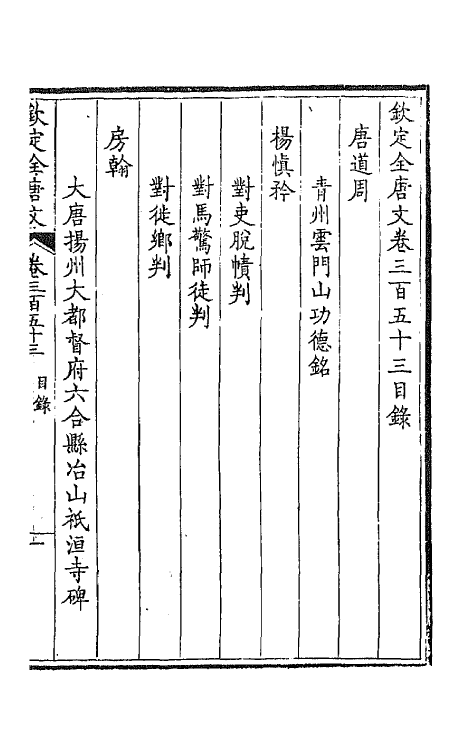 欽定全唐文卷三百五十三目錄
唐道周
青州雲門山功德銘
楊慎矜
對吏脫幘判
對馬驚師徒判
對徙鄉判
房翰
大唐揚州大都督府六合縣冶山祇洹寺碑
欽定全唐文 卷三百五十三 目錄 一